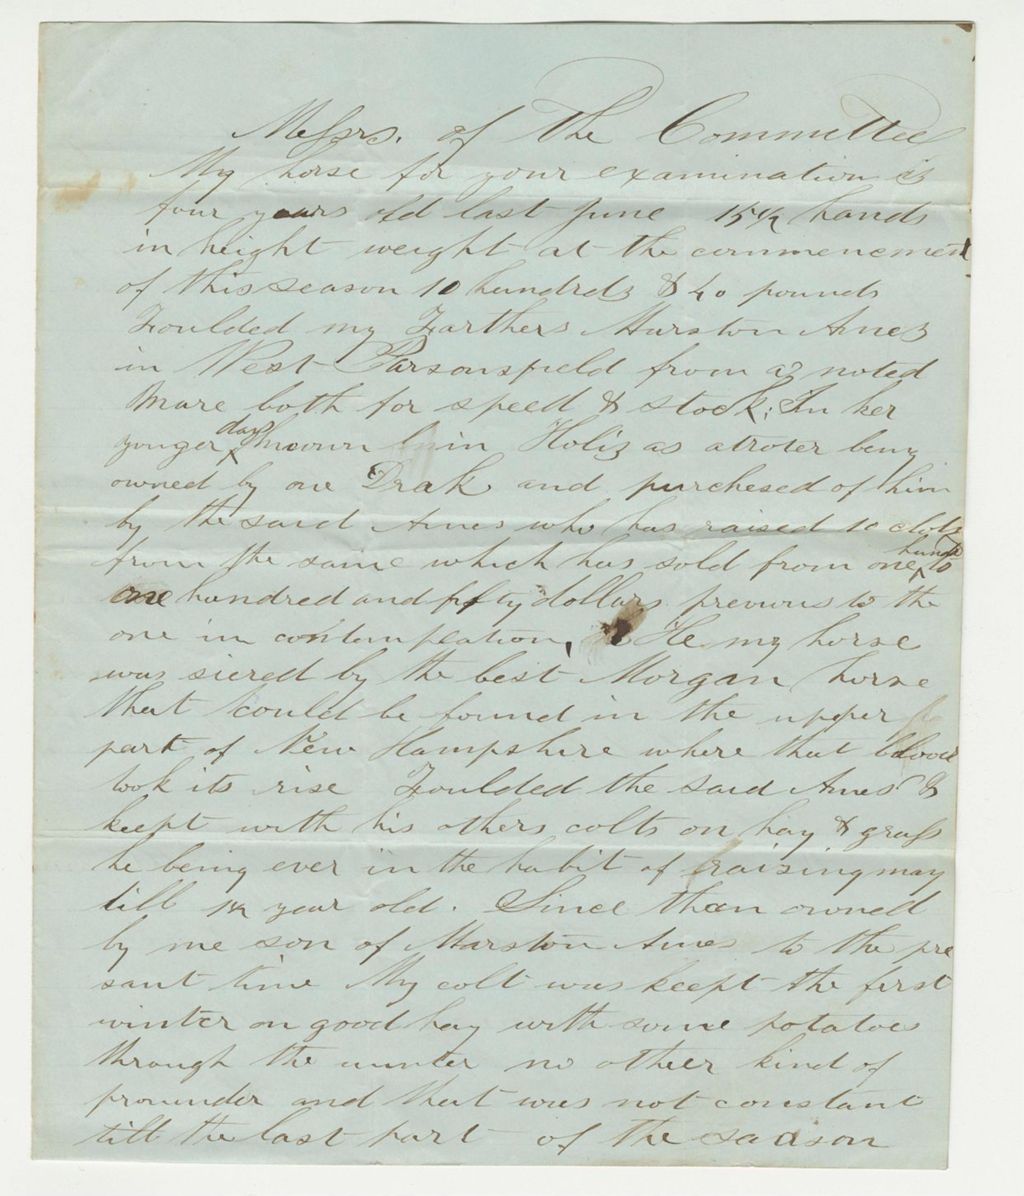 Messrs. of The Committee
My horse for your examination is
four years old last June 15 1/2 hands
in height weight at the commencement
of this season 10 hundrds & 40 pounds
Foulded my Farthers Marston Ames
in West Parsonsfield from a noted
Mare both for speed & stock; In her
yonger days knowen in Holis as a troter being
owned by one Drak and purchesed of him
by the said Ames who has raised 10 colts
from the same which has sold from one hund to
one hundred and fifty dollars previous to the
one in contempeation, He my horse
was siered by the best Morgan horse
that could be found in the upper
part of New Hampshire where that blood
took its rise Foulded the said Ames &
keept with his others colts on hay & grass
he being ever in the habit of raising may
till 1 1/2 year old. Since then owned
by me son of Marston Ames to the pre
sant time My colt was keept the first
winter on good hay with some potatoes
through the winter no other kind of
provinder and that was not constant
till the last part of the season